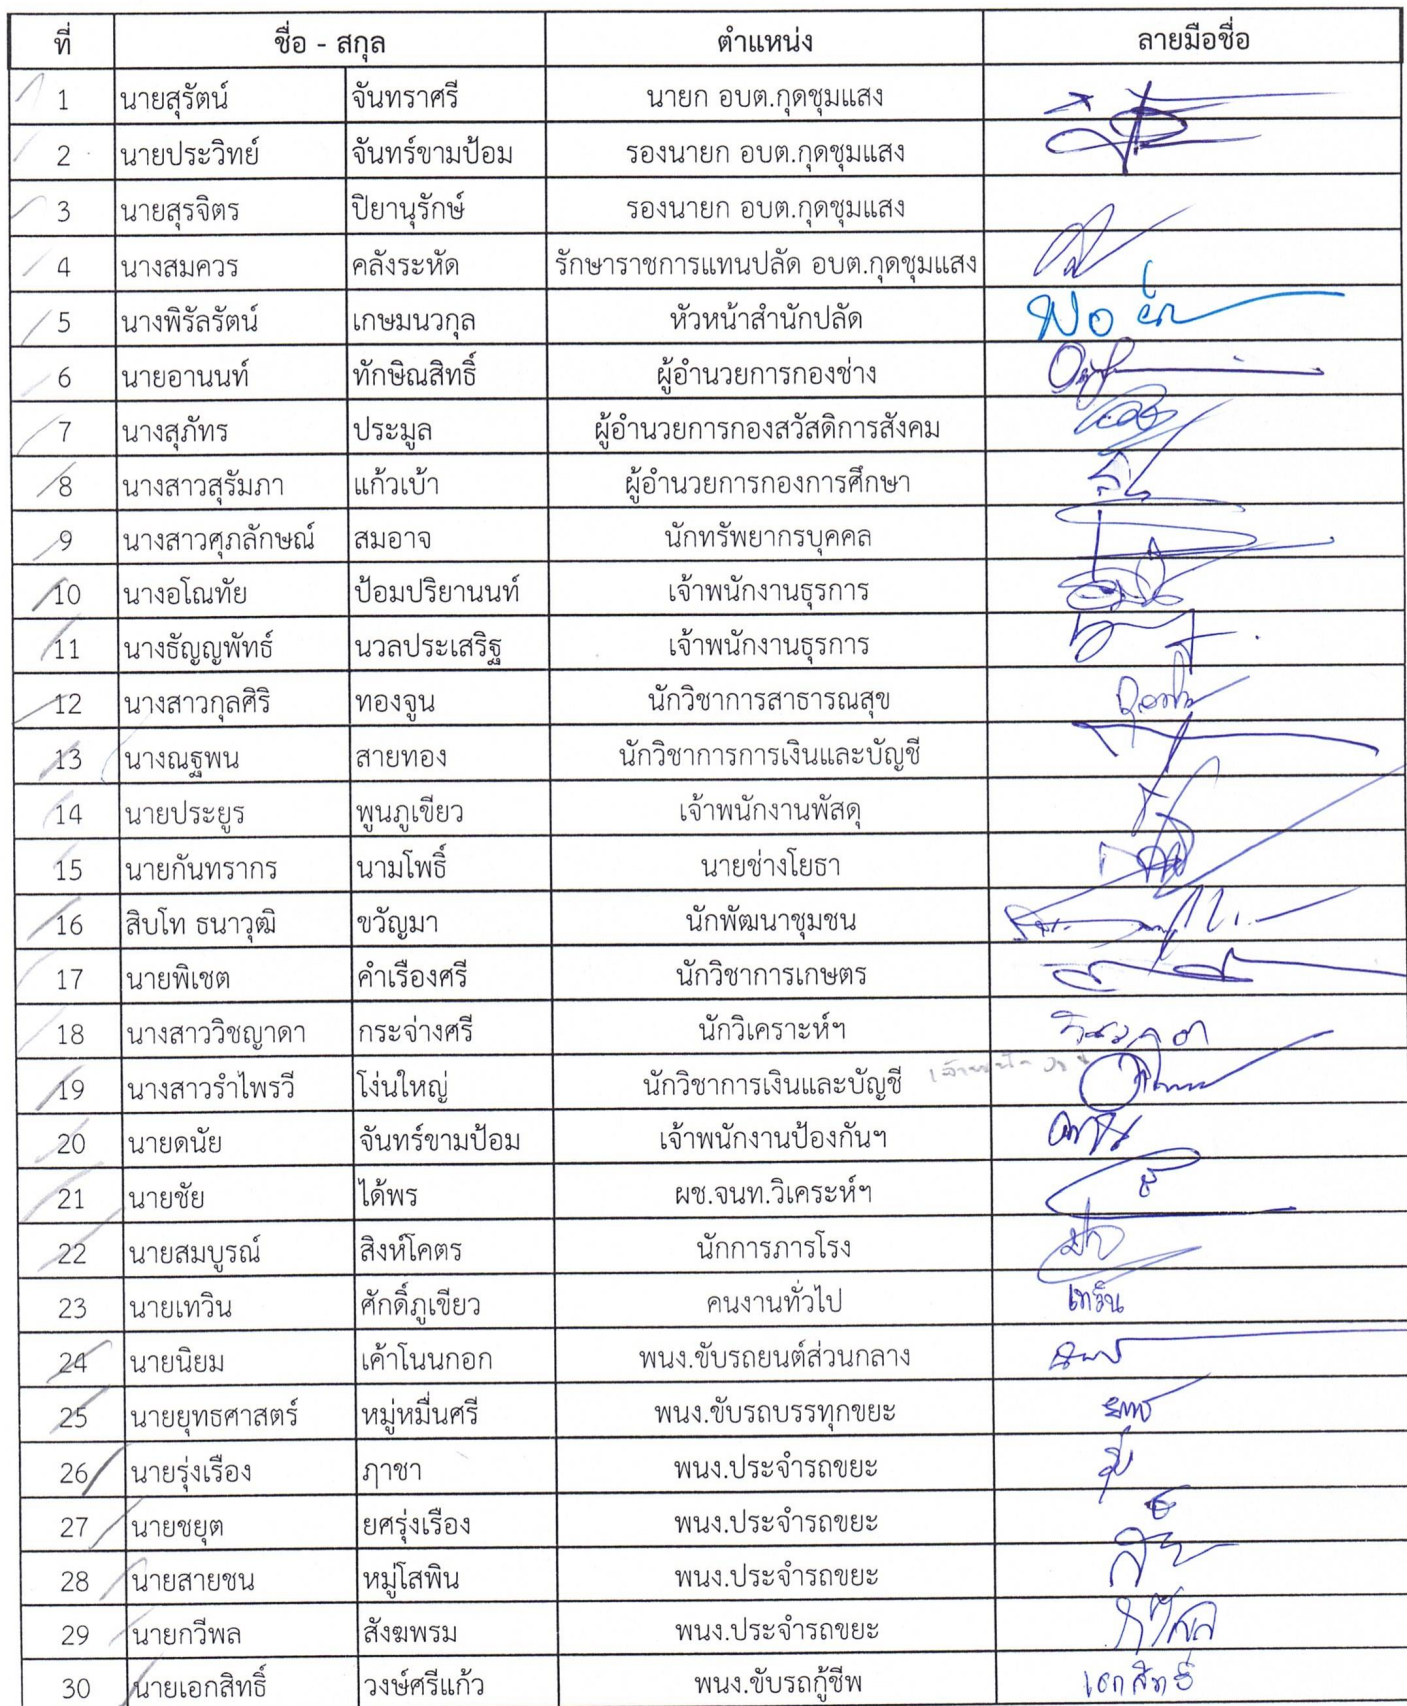 ที่ ชื่อ - สกุล ตำแหน่ง ลายมือชื่อ
1 นายสุรัตน์ จันทราศรี นายก อบต.กุดชุมแสง
2 นายประวิทย์ จันทร์ขามป้อม รองนายก อบต.กุดชุมแสง
3 นายสุรจิตร ปิยานุรักษ์ รองนายก อบต.กุดชุมแสง
4 นางสมควร คลังระหัด รักษาราชการแทนปลัด อบต.กุดชุมแสง
5 นางพิรัลรัตน์ เกษมนวกุล หัวหน้าสำนักปลัด
6 นายอานนท์ ทักษิณสิทธิ์ ผู้อำนวยการกองช่าง
7 นางสุภัทร ประมูล ผู้อำนวยการกองสวัสดิการสังคม
8 นางสาวสุรัมภา แก้วเบ้า ผู้อำนวยการกองการศึกษา
9 นางสาวศุภลักษณ์ สมอาจ นักทรัพยากรบุคคล
10 นางอโณทัย ป้อมปริยานนท์ เจ้าพนักงานธุรการ
11 นางธัญญพัทธ์ นวลประเสริฐ เจ้าพนักงานธุรการ
12 นางสาวกุลศิริ ทองจูน นักวิชาการสาธารณสุข
13 นางณฐพน สายทอง นักวิชาการการเงินและบัญชี
14 นายประยูร พูนภูเขียว เจ้าพนักงานพัสดุ
15 นายกันทรากร นามโพธิ์ นายช่างโยธา
16 สิบโท ธนาวุฒิ ขวัญมา นักพัฒนาชุมชน
17 นายพิเชต คำเรืองศรี นักวิชาการเกษตร
18 นางสาววิชญาดา กระจ่างศรี นักวิเคราะห์ฯ
19 นางสาวรำไพรวี โง่นใหญ่ นักวิชาการเงินและบัญชี
20 นายดนัย จันทร์ขามป้อม เจ้าพนักงานป้องกันฯ
21 นายชัย ได้พร ผช.จนท.วิเคระห์ฯ
22 นายสมบูรณ์ สิงห์โคตร นักการภารโรง
23 นายเทวิน ศักดิ์ภูเขียว คนงานทั่วไป เทวิน
24 นายนิยม เค้าโนนกอก พนง.ขับรถยนต์ส่วนกลาง
25 นายยุทธศาสตร์ หมู่หมื่นศรี พนง.ขับรถบรรทุกขยะ
26 นายรุ่งเรือง ภาชา พนง.ประจำรถขยะ
27 นายชยุต ยศรุ่งเรือง พนง.ประจำรถขยะ
28 นายสายชน หมู่โสพิน พนง.ประจำรถขยะ
29 นายกวีพล สังฆพรม พนง.ประจำรถขยะ
30 นายเอกสิทธิ์ วงษ์ศรีแก้ว พนง.ขับรถกู้ชีพ เอกสิทธิ์